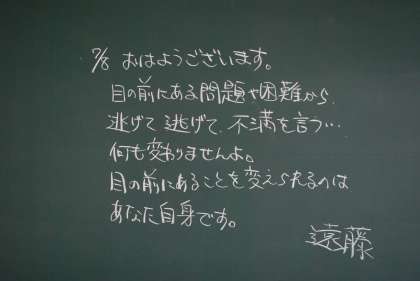 7/8 おはようございます。
目の前にある問題や困難から
逃げて逃げて、不満を言う…
何も変わりませんよ。
目の前にあることを変えられるのは
あなた自身です。
遠藤